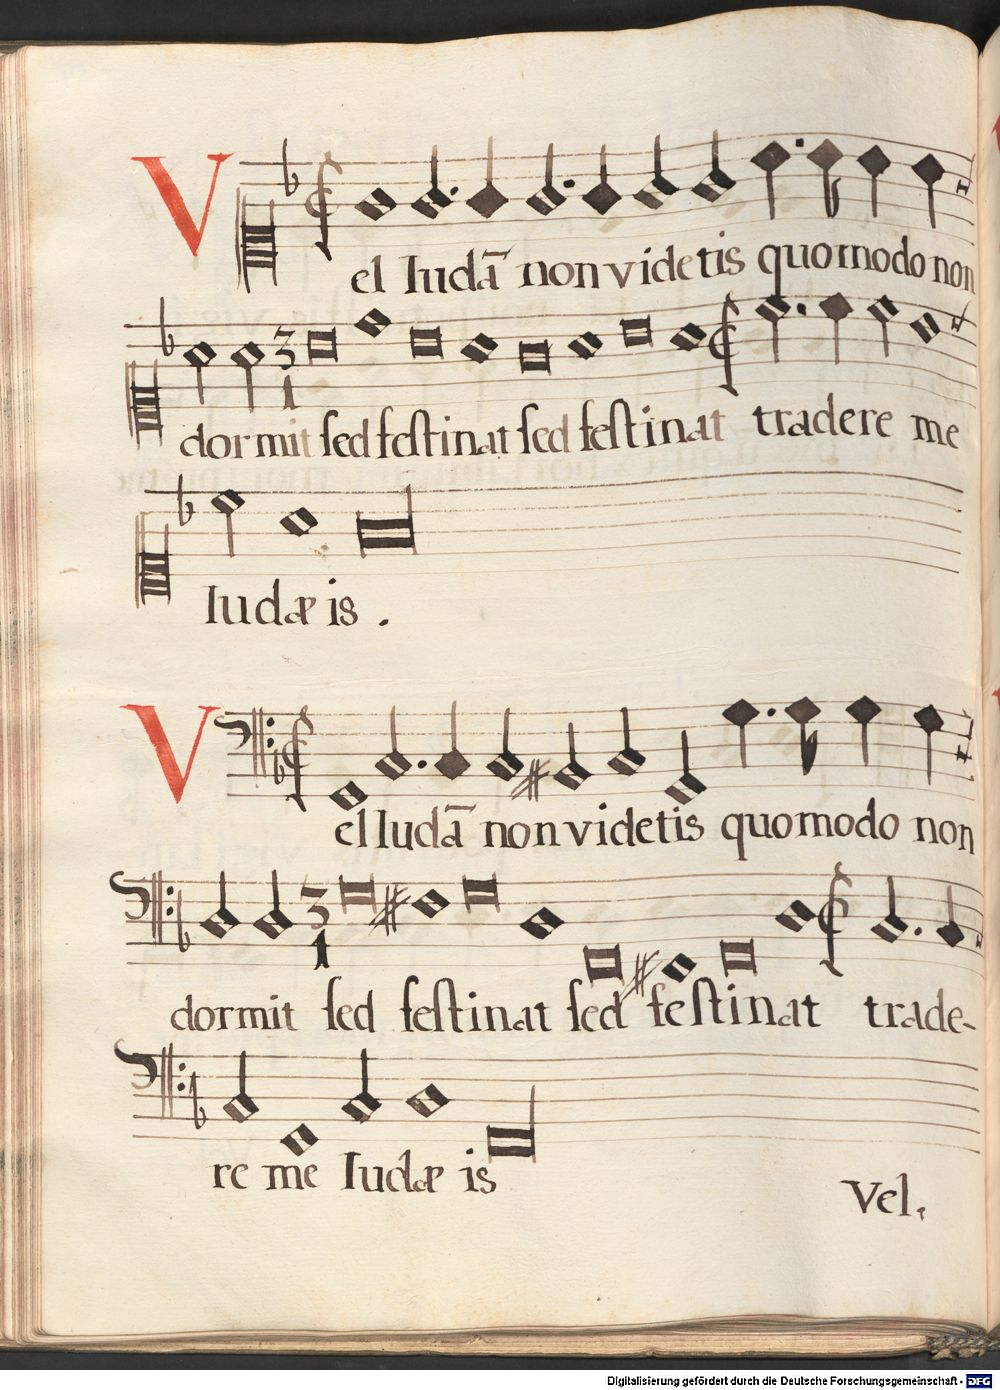 Vel Iudā non videtis quomodo non
3
1
dormit sed festinat sed festinat tradere me
Iudæis .
Vel Iudā non videtis quomodo non
3
1
dormit sed festinat sed festinat trade-
re me Iudæ is
Vel.
Digitalisierung gefördert durch die Deutsche Forschungsgemeinschaft - DFG